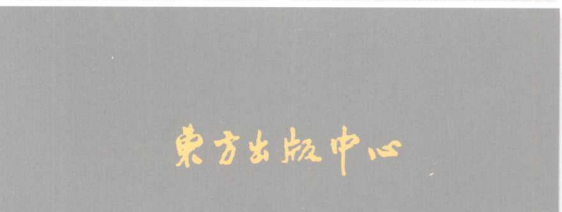 東方出版中心